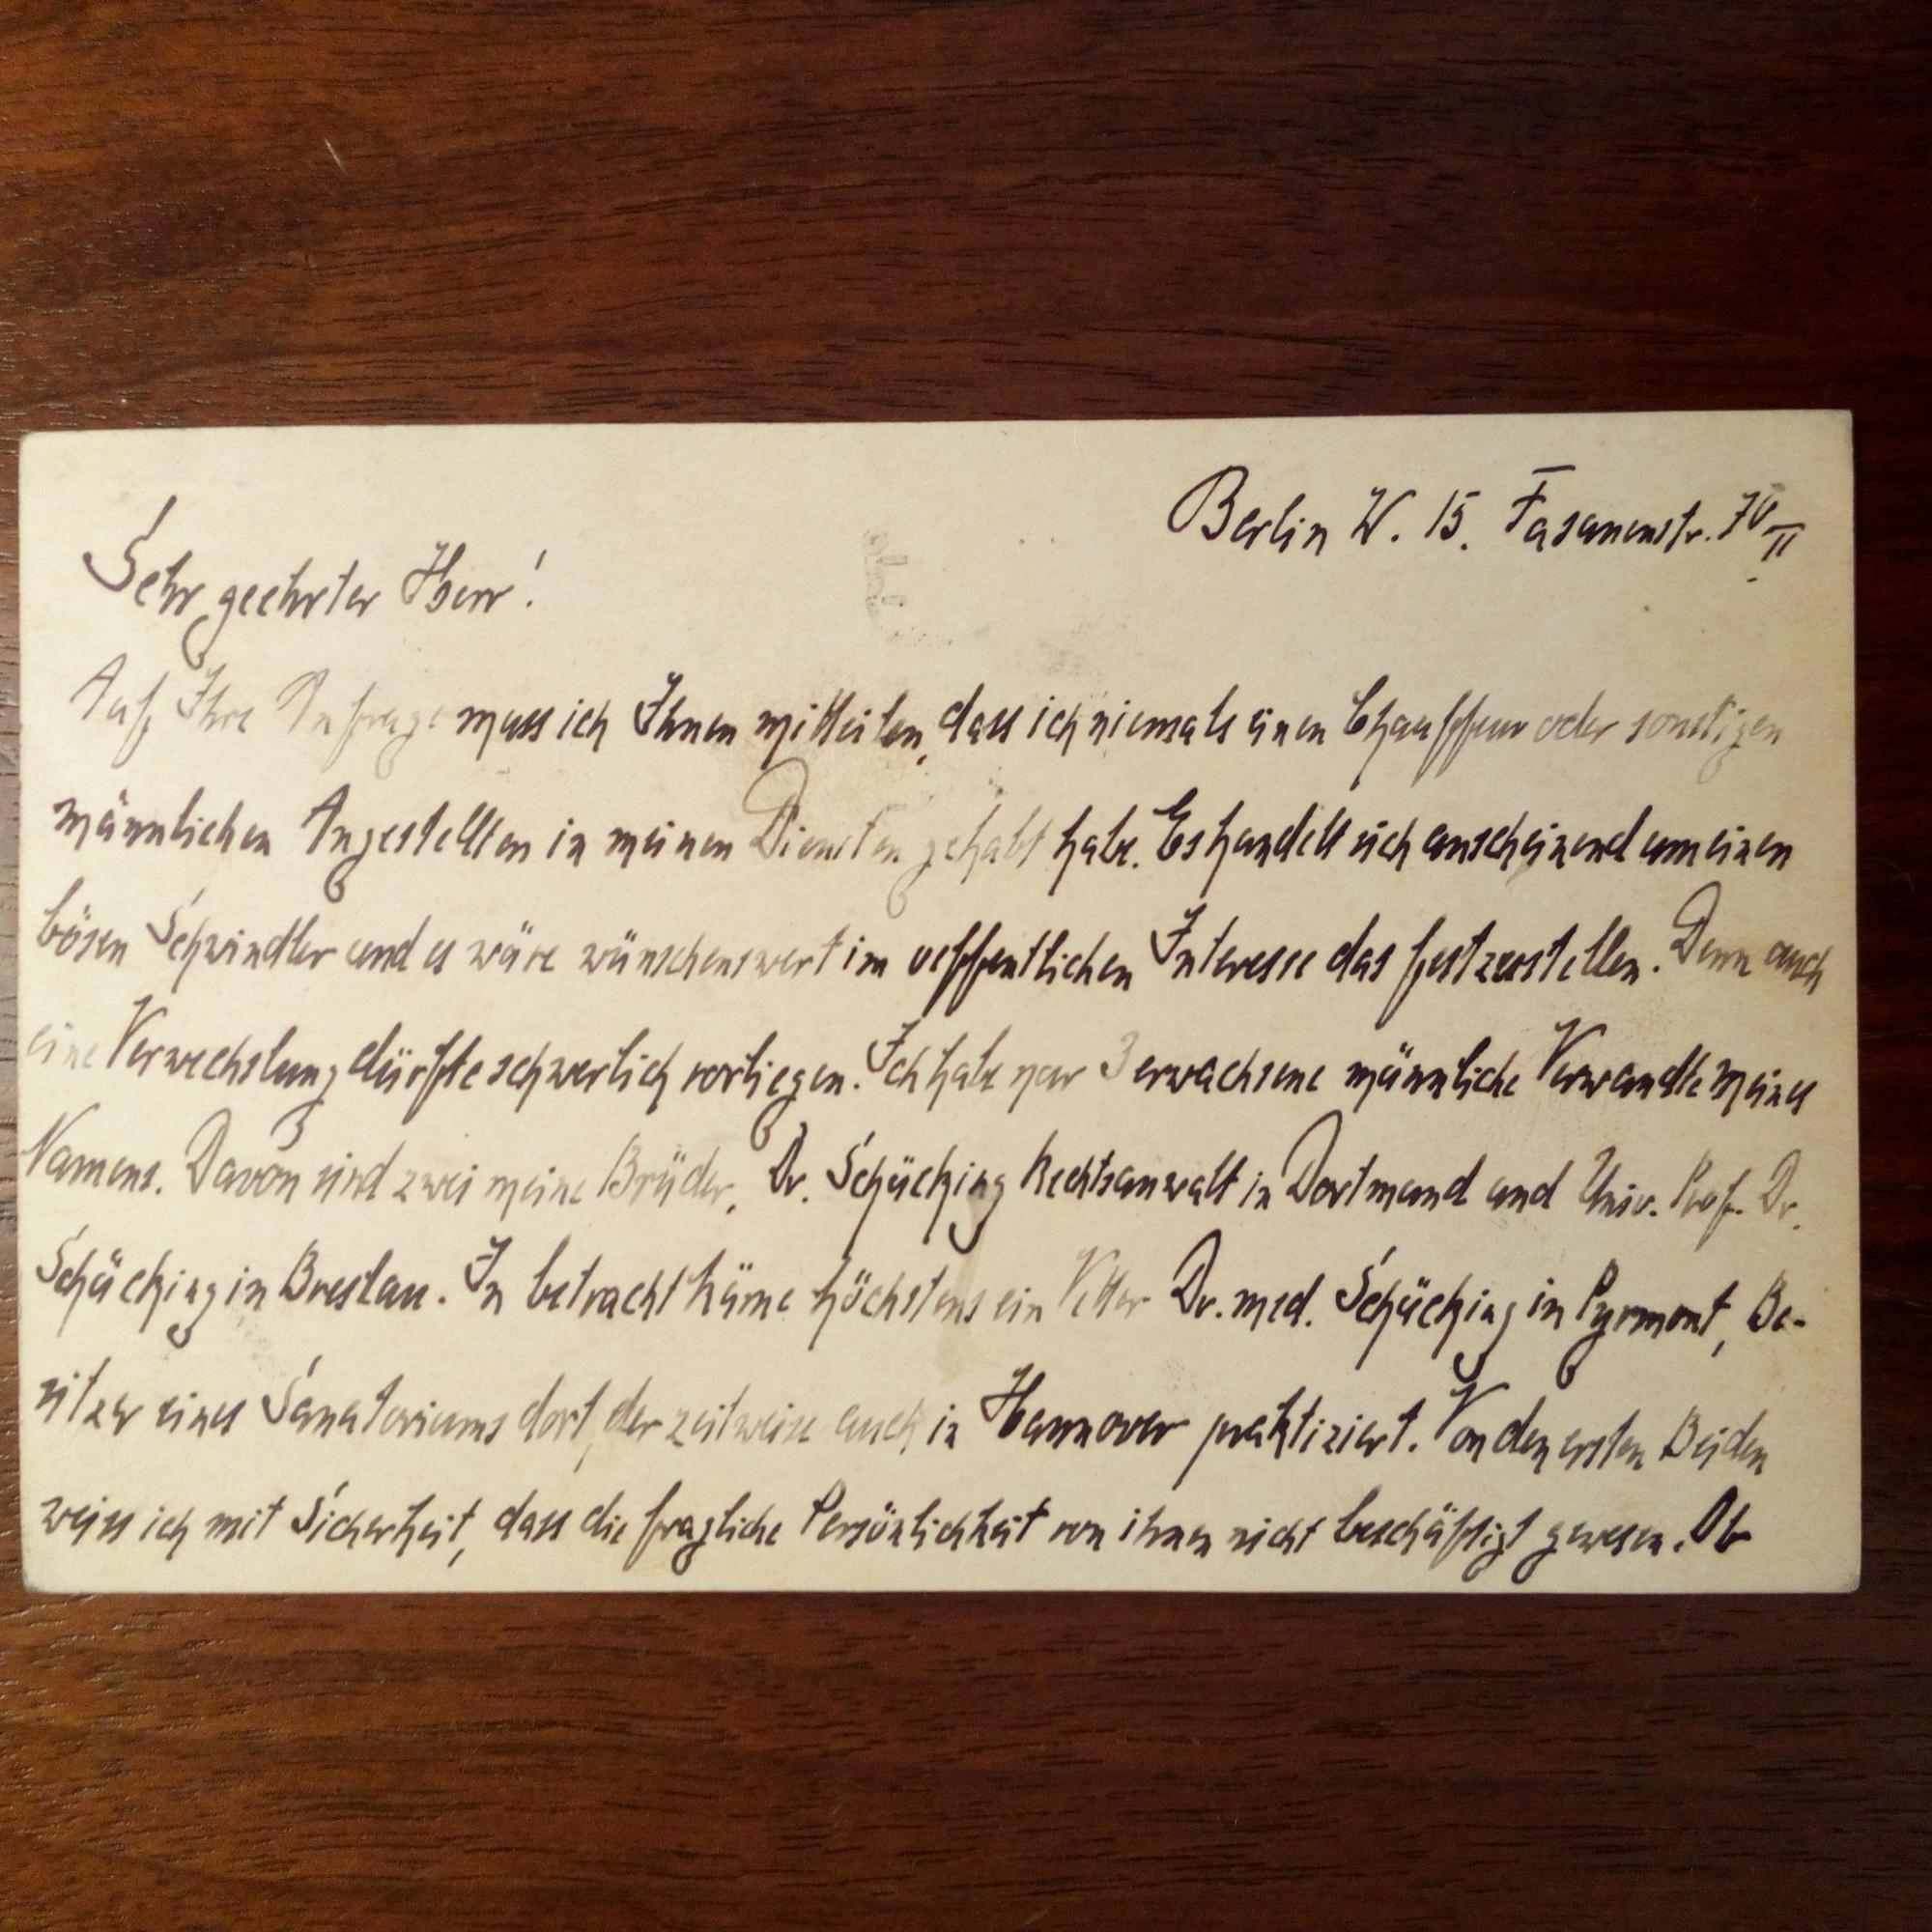 Berlin W. 15. Fasanenstr. 70 II
Sehr geehrter Herr!
Auf Ihre Anfrage muss ich Ihnen mitteilen, dass ich niemals einen Chauffeur oder sonstigen
männlichen Angestellten in meinen Diensten gehabt habe. Es handelt sich anscheinend um einen
bösen Schwindler und es wäre wünschenswert im oeffentlichen Interesse das festzustellen. Denn auch
eine Verwechslung dürfte schwerlich vorliegen. Ich habe nur 3 erwachsene männliche Verwandte meines
Namens. Davon sind zwei meine Brüder, Dr. Schücking Rechtsanwalt in Dortmund und Univ. Prof. Dr.
Schücking in Breslau. In betracht käme höchstens ein Vetter Dr. med. Schücking in Pyrmont, Be-
sitzer eines Sanatoriums dort, der zeitweise auch in Hannover praktiziert. Von den ersten Beiden
weiss ich mit Sicherheit, dass die fragliche Persönlichkeit von ihnen nicht beschäftigt gewesen. Ob